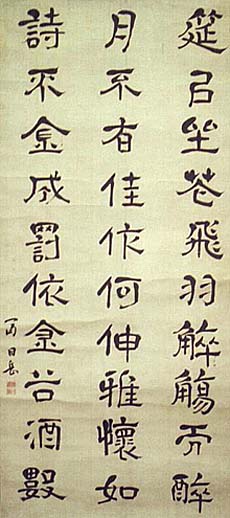 筵㠯坐花飛羽觴而醉
月不有佳作何伸雅懷如
詩不金成罰依金谷酒數